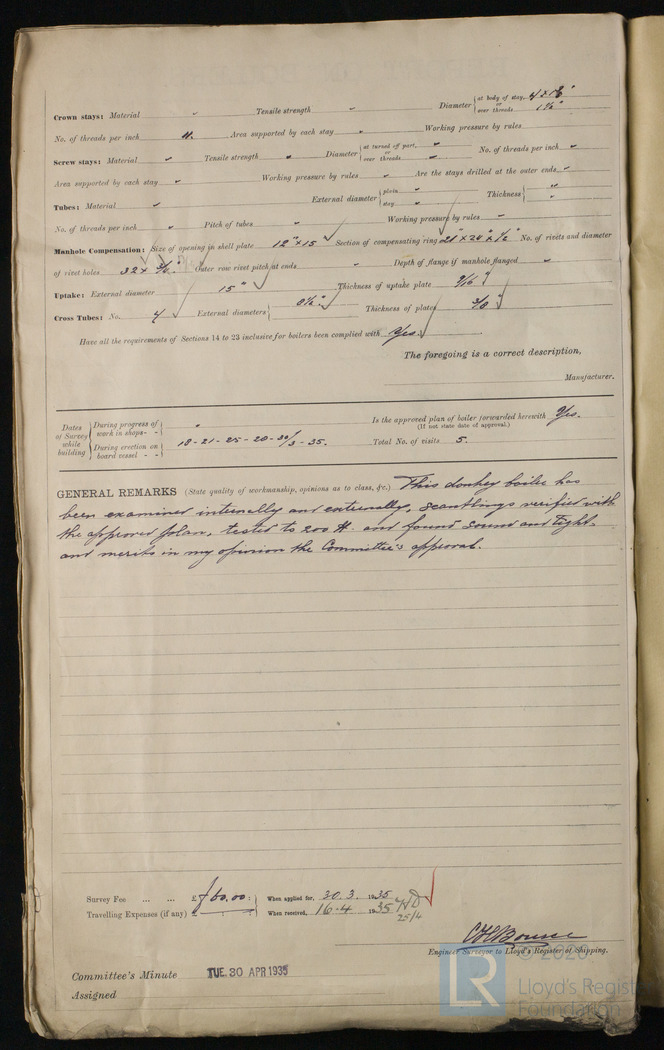 Crown stays: Material " Tensile strength " Diameter { at body of stay, or over threads 1⅝"
No. of threads per inch 11. Area supported by each stay " Working pressure by rules
Screw stays: Material " Tensile strength " Diameter { at turned off part, or over threads " No. of threads per inch "
Area supported by each stay " Working pressure by rules " Are the stays drilled at the outer ends "
Tubes: Material " External diameter { plain " stay " Thickness { " "
No. of threads per inch " Pitch of tubes " Working pressure by rules "
Manhole Compensation: Size of opening in shell plate 12" × 15" Section of compensating ring No. of rivets and diameter
of rivet holes 32 × Outer row rivet pitch at ends " Depth of flange if manhole flanged "
Uptake: External diameter 15" Thickness of uptake plate 9/16"
Cross Tubes: No. 4 External diameters { 8½" Thickness of plates 3/8"
Have all the requirements of Sections 14 to 23 inclusive for boilers been complied with Yes.
The foregoing is a correct description,
Manufacturer.
Dates of Survey while building { During progress of work in shops - - " Is the approved plan of boiler forwarded herewith Yes.
(If not state date of approval.)
During erection on board vessel - - 18-21-25-28-30/3-35. Total No. of visits 5.
GENERAL REMARKS (State quality of workmanship, opinions as to class, &c.) This donkey boiler has
been examined internally and externally, scantlings verified with
the approved plan, tested to 200 #. and found sound and tight-
and merits in my opinion the Committee's approval.
Survey Fee ... ... £ 60.00: When applied for, 30. 3. 1935
Travelling Expenses (if any) £ When received, 16-4 1935 25/4
Engineer Surveyor to Lloyd's Register of Shipping.
Committee's Minute TUE. 30 APR 1935
Assigned
LR © 2020
Lloyd's Register
Foundation